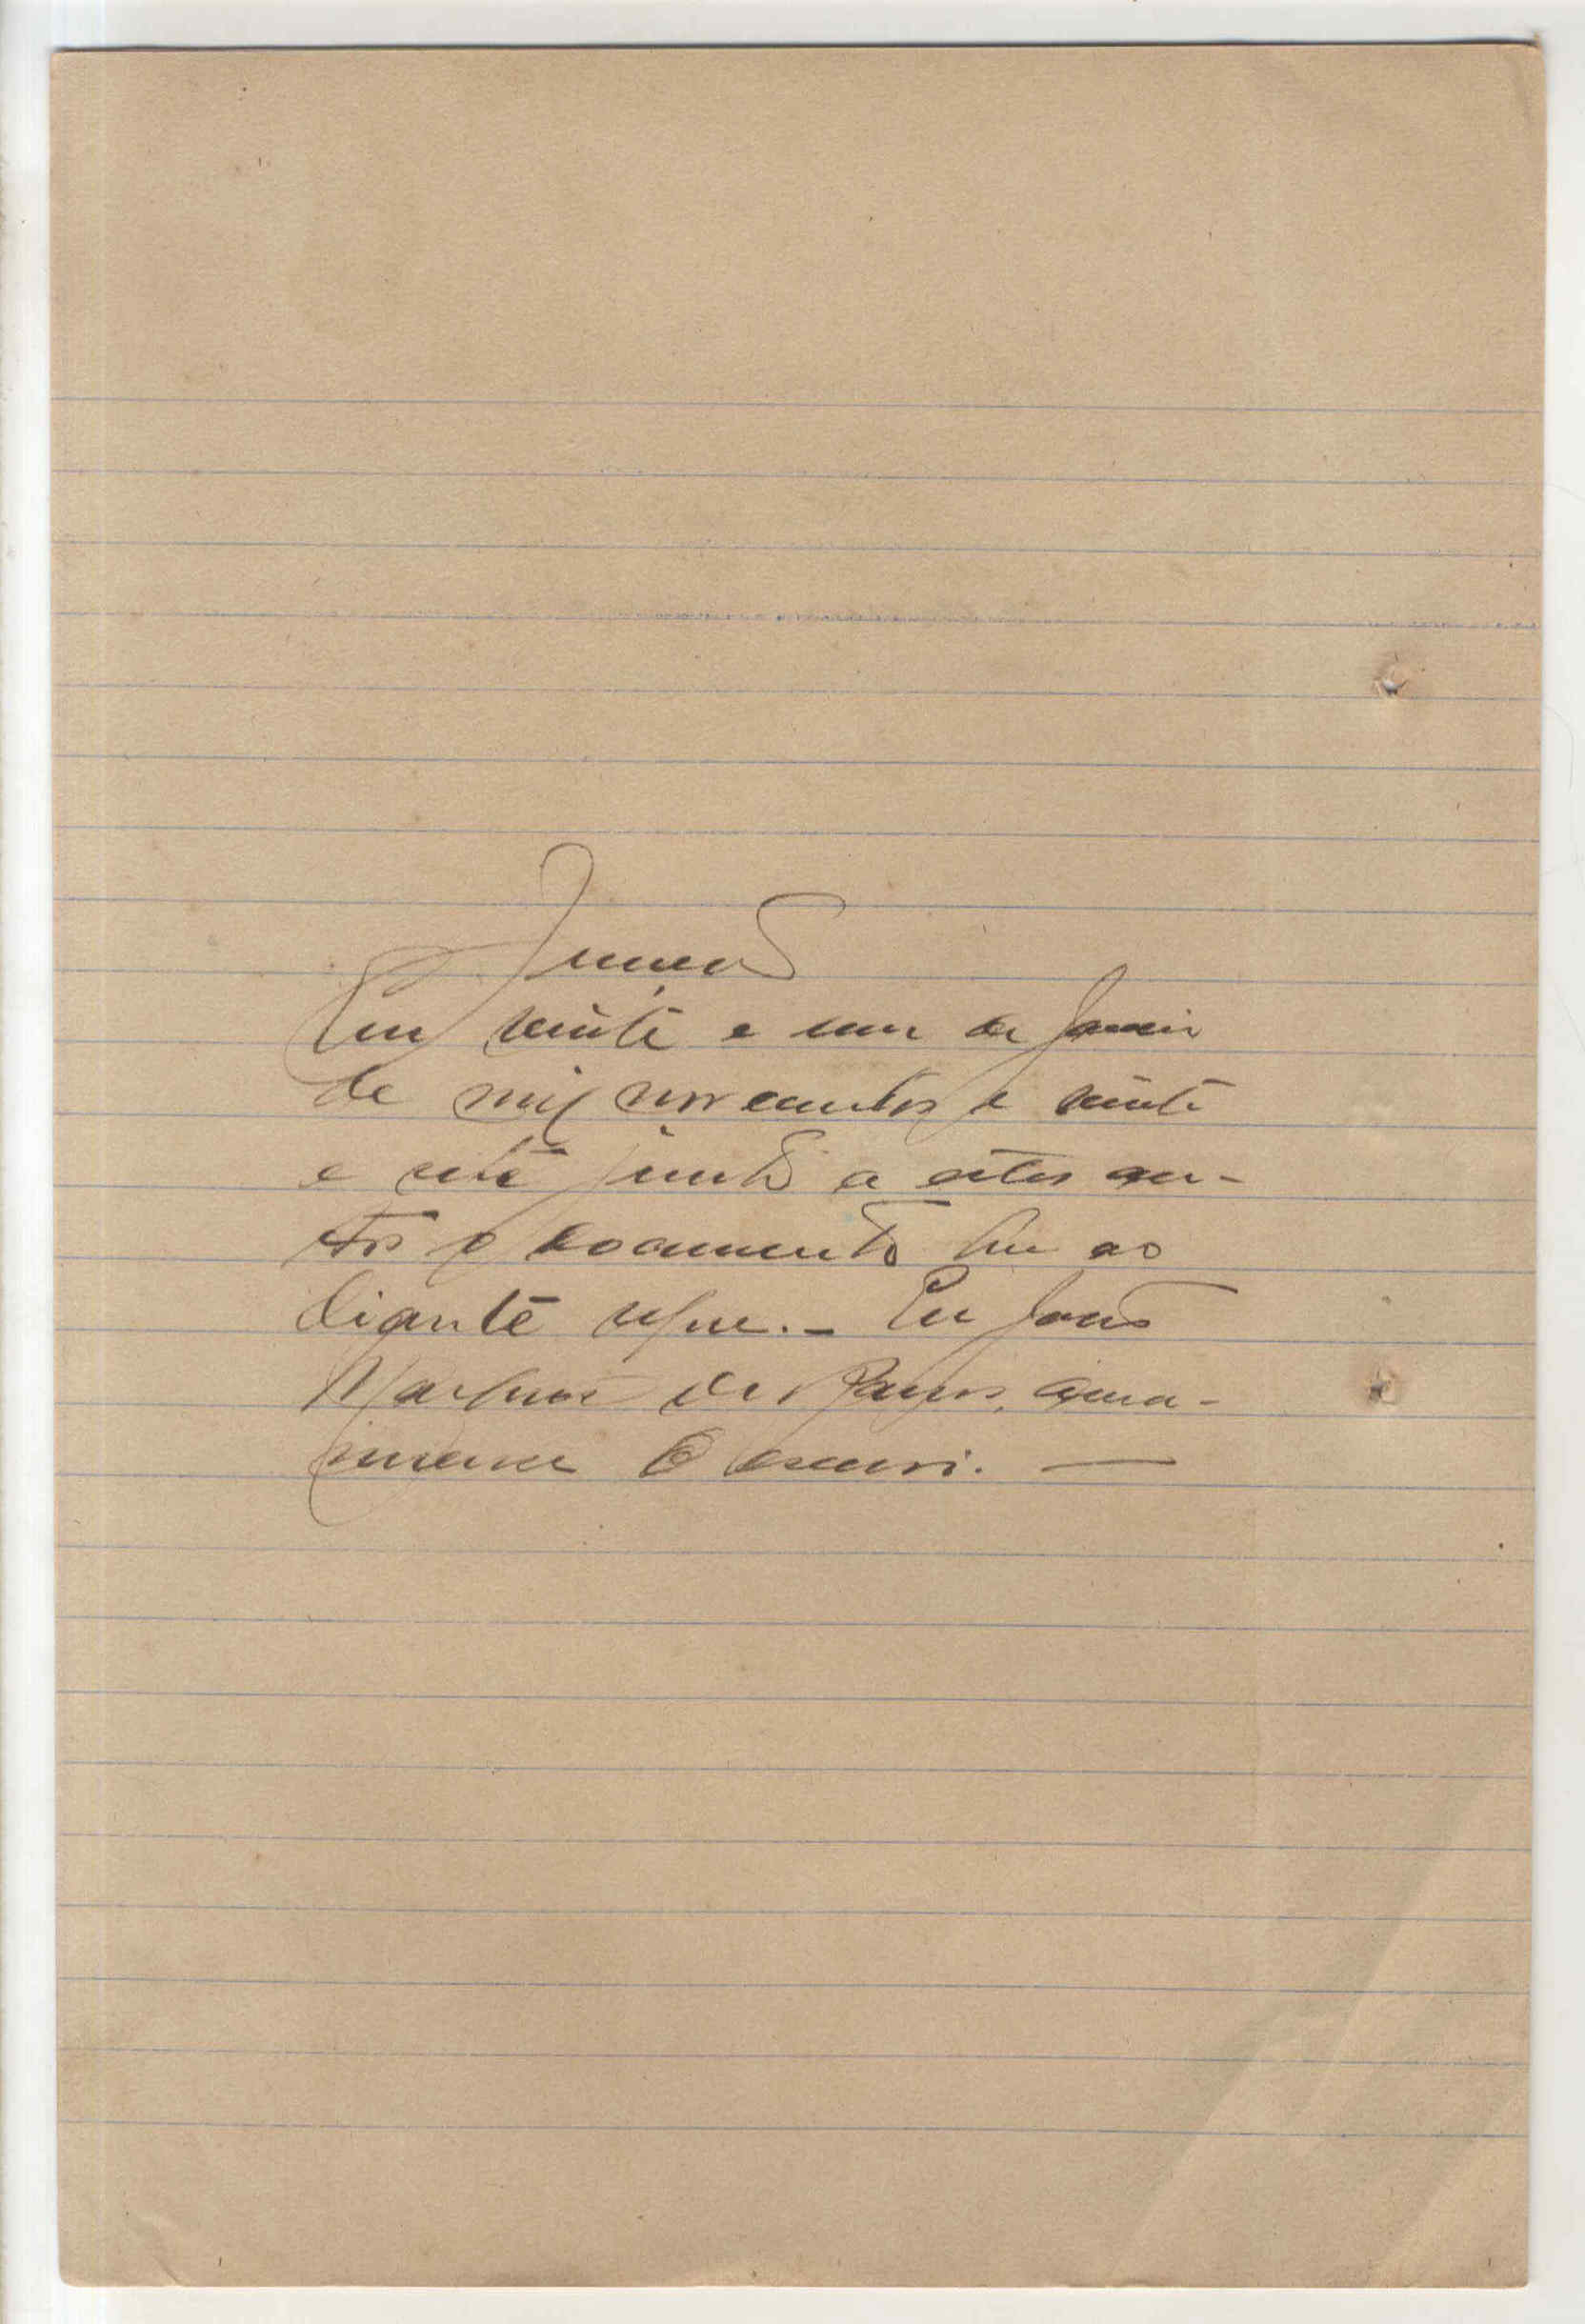 Juncção
Em vinte e um de Janeiro
de mil novecentos e vinte
e sete junto a estes au-
tos o documento que ao
diante segue. — Eu João
Marques de amanuense
o escrevi. —